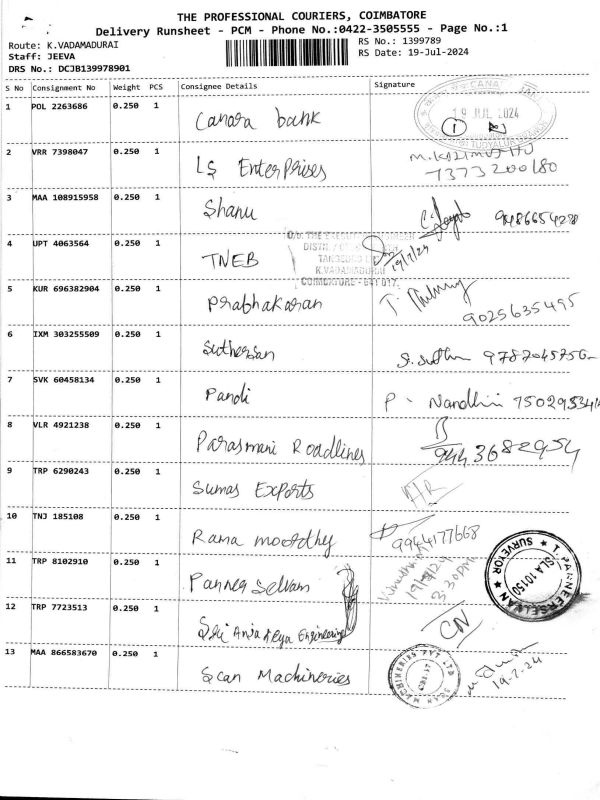 THE PROFESSIONAL COURIERS, COIMBATORE
Delivery Runsheet - PCM - Phone No.:0422-3505555 - Page No.:1
Route: K.VADAMADURAI
RS No.: 1399789
Staff: JEEVA
RS Date: 19-Jul-2024
DRS No.: DCJB139978901
S No Consignment No Weight PCS Consignee Details Signature
1 POL 2263686 0.250 1 Canara bank
19 JUL 2024
2 VRR 7398047 0.250 1 LS EnterPrises
7373200180
3 MAA 108915958 0.250 1 Shanu
4 UPT 4063564 0.250 1 TNEB 19/7/24
K.VADAMADURAI
COIMBATORE - 641 017.
5 KUR 696382904 0.250 1 Prabhakaran
9025635495
6 IXM 303255509 0.250 1 Suthersan
7 SVK 60458134 0.250 1 Pandi P. Nandhini
8 VLR 4921238 0.250 1 Parasmani Roadlines 9443682954
9 TRP 6290243 0.250 1 Sumas Exports
10 TNJ 185108 0.250 1 Rama moordhy 9944177668
11 TRP 8102910 0.250 1 Panner Selvam 3.30PM
T. PANNEERSELVAM SURVEYOR SLA 10150
12 TRP 7723513 0.250 1 Sri Anjaneya Engineering CN
13 MAA 866583670 0.250 1 Scan Machineries 19.7.24
SCAN MACHINERIES PVT LTD